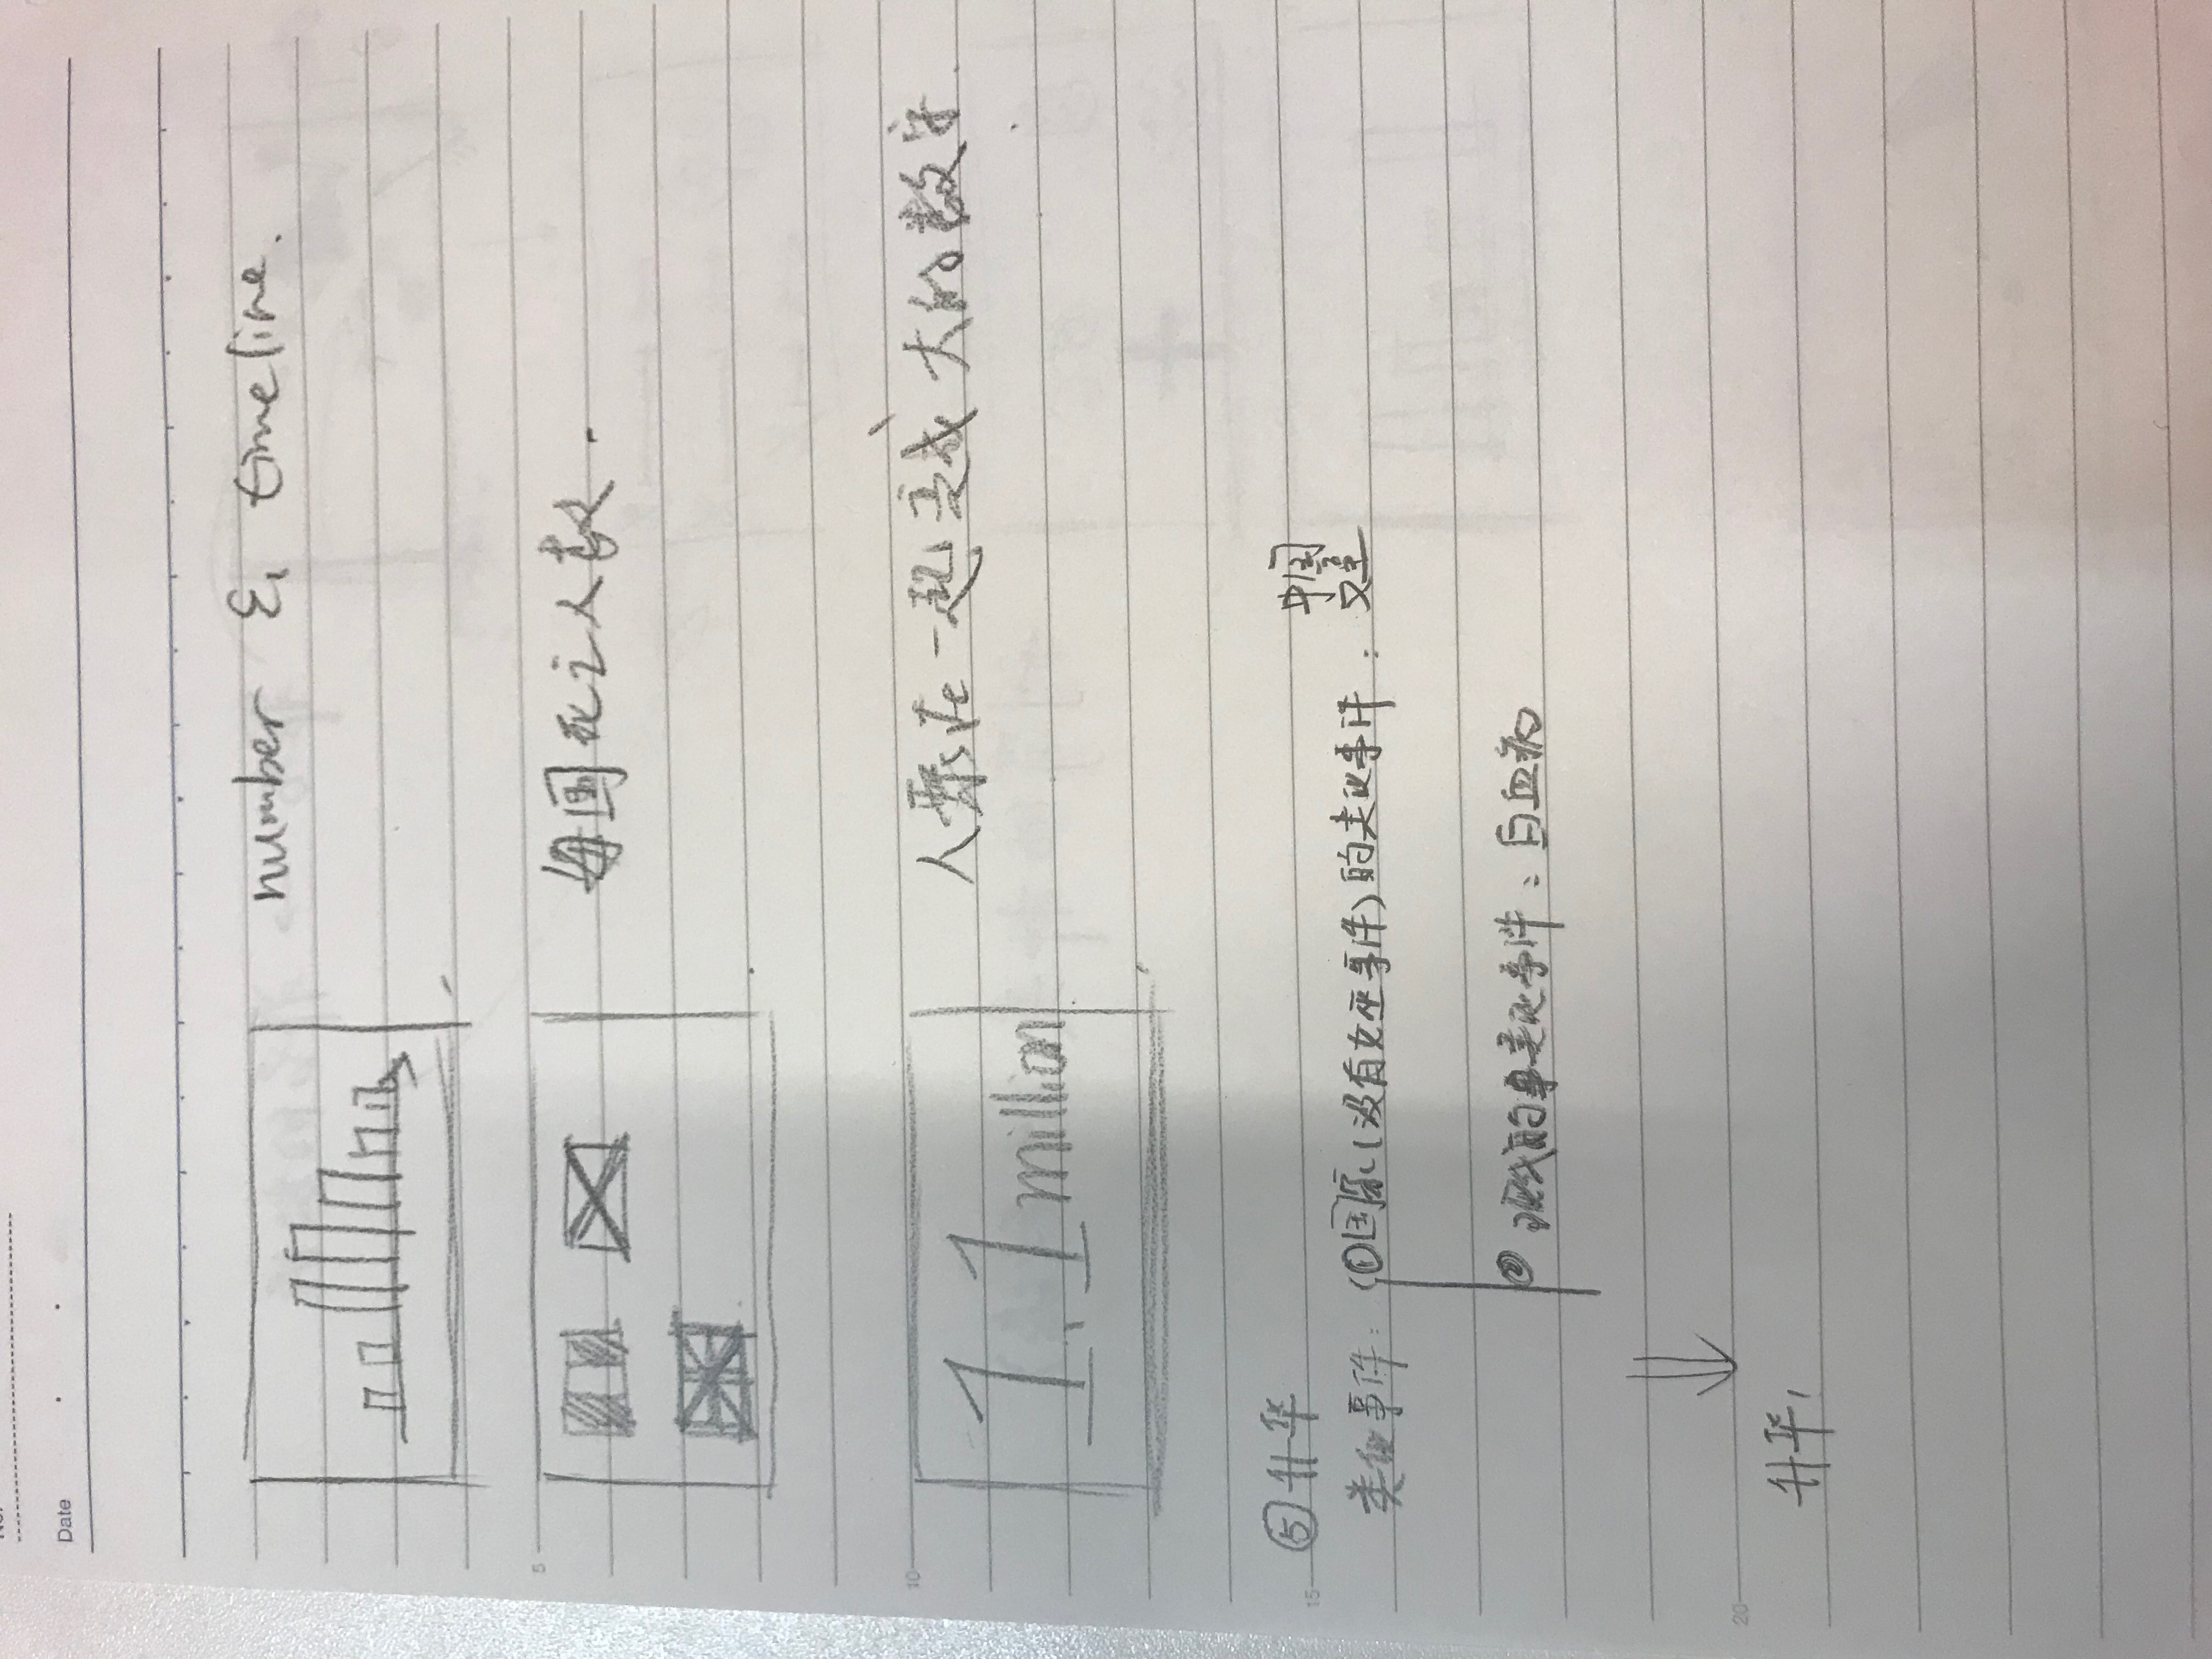 No.
Date
number & timeline.
5
每国死亡人数.
10
1.1 million
人聚在一起变成大的数字.
⑤升华
15
类似事件: ①国家(没有女巫事件)的类似事件: 中国
②现代的类似事件: 白血病
20
升华: